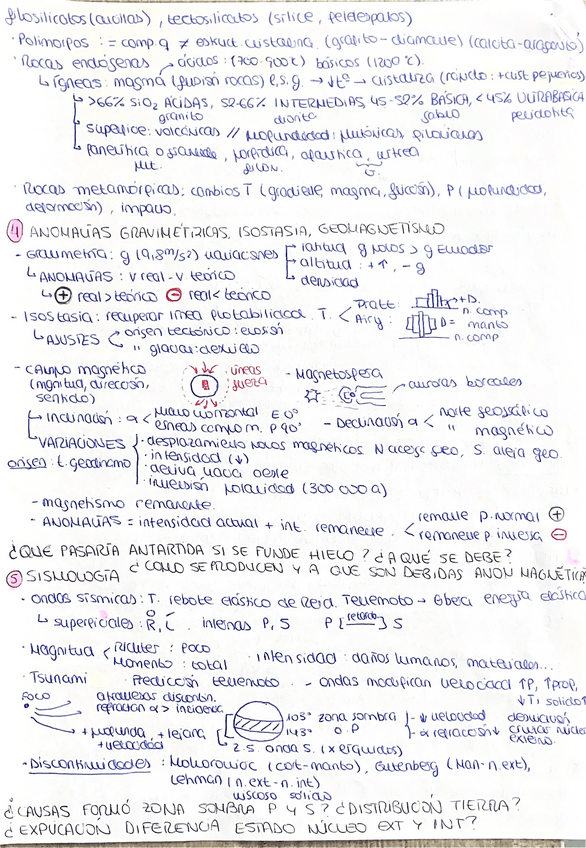 filosilicatos (arcillas), tectosilicatos (sílice, feldespatos)
· Polimorfos: = comp.q ≠ estruct cristalina. (grafito-diamante) (calcita-aragonito)
· Rocas endógenas → ácidos: (700-900ºc) básicos (1200ºc).
↳ ígneas: magma (fusión rocas) l, s, g. → ↓tº → cristaliza (rápido: +crist pequeños)
>66% SiO2 ÁCIDAS, 52-66% INTERMEDIAS, 45-52% BÁSICA, <45% ULTRABÁSICA
granito diorita gabro peridotita
superficie: volcánicas // profundidad: plutónicas, filonianas
faneritica o granuda, porfídica, afanítica, vítrea
plut. filón. v.
· Rocas metamórficas: cambios T (gradiente, magma, fricción), P (profundidad,
deformación), impacto.
4 ANOMALÍAS GRAVIMÉTRICAS, ISOSTASIA, GEOMAGNETISMO
- Gravimetría: g (9,8m/s²) variaciones
latitud g polos > g Ecuador
altitud: +↑, -g
densidad
↳ ANOMALÍAS: v real - v teórico
↳ + real>teórico - real<teórico
- Isostasia: recuperar línea flotabilidad. T. < Pratt: +D.
n. comp
Airy: D= manto
n. comp
↳ AJUSTES < origen tectónico: erosión
" glaciar: deshielo
- CAMPO magnético
(magnitud, dirección,
sentido)
líneas
fuerza
- Magnetosfera
auroras boreales
Inclinación: α < plano horizontal E 0º
líneas campo m. P 90º
- Declinación α < norte geográfico
" magnético
VARIACIONES
· desplazamiento polos magnéticos N acerc geo, S. aleja geo.
· intensidad (↓)
· deriva hacia oeste
· inversión polaridad (300 000 a)
origen: t. geodinamo
- magnetismo remanente.
- ANOMALÍAS = intensidad actual + int. remanente. < remante p. normal +
remanente p. inversa -
¿QUÉ PASARÍA ANTARTIDA SI SE FUNDE HIELO? ¿A QUÉ SE DEBE?
¿CÓMO SE PRODUCEN Y A QUE SON DEBIDAS ANOM MAGNÉTICA?
5 SISMOLOGÍA
· ondas sísmicas: T. rebote elástico de Reid. Terremoto → libera energía elástica
↳ superficiales: R, L. internas P, S P [retardo] S
· Magnitud < Richter: foco
Momento: total
· Intensidad: daños humanos, materiales...
· Tsunami · Predicción terremoto. - ondas modifican velocidad ↑P, ↑prof,
↓T, sólido↑
FOCO
atraviesas discontin.
refracción α > incidencia
+ profunda, + lejana,
+ velocidad
103º zona sombra
143º O.P
} - ↓ velocidad
- α refracción↓
cruzar núcleo
externo.
2. S. onda S. (x líquidos)
- Discontinuidades: Mohorovicic (cort-manto), Gutenberg (Man-n.ext),
Lehman (n.ext-n.int)
viscoso sólido
¿CAUSAS FORMÓ ZONA SOMBRA P Y S? ¿DISTRIBUCIÓN TIERRA?
¿EXPLICACIÓN DIFERENCIA ESTADO NÚCLEO EXT Y INT?